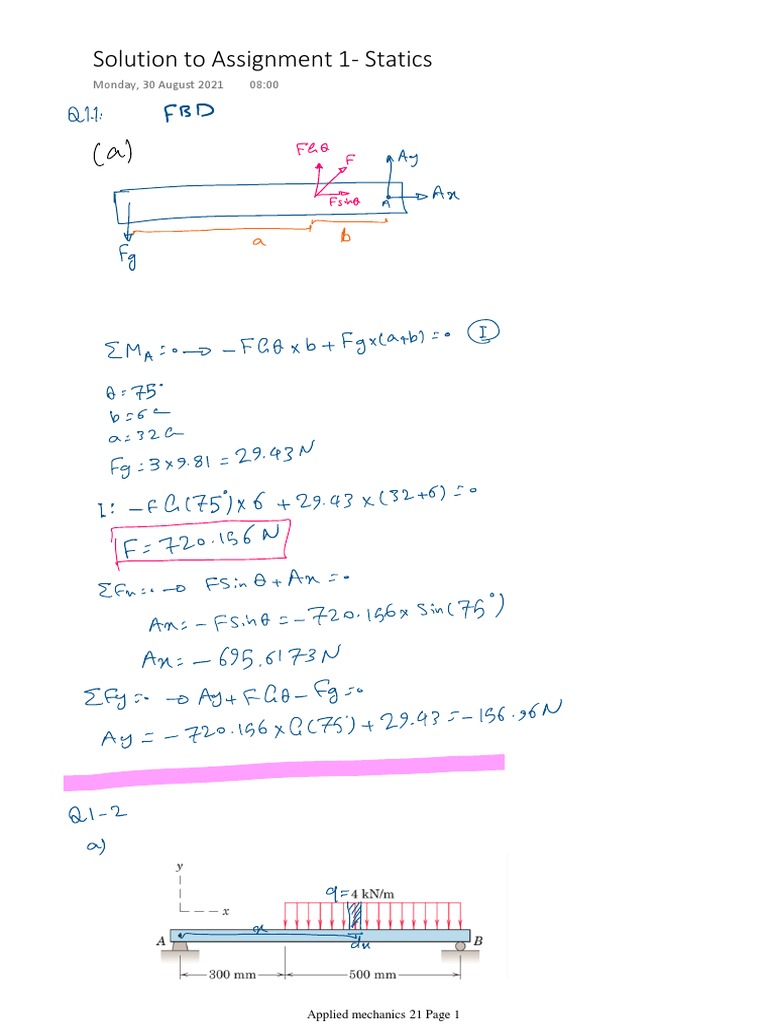 Solution to Assignment 1- Statics
Monday, 30 August 2021 08:00
Q1.1: FBD
(a)
FCosθ F Ay
Fsinθ A Ax
Fg a b
ΣMA=0 → -FCosθ×b+Fg×(a+b)=0 (I)
θ=75°
b=6
a=32
Fg=3×9.81=29.43N
I: -FCos(75°)×6+29.43×(32+6)=0
F=720.156N
ΣFx=0 → FSinθ+Ax=0
Ax=-Fsinθ=-720.156×Sin(75°)
Ax=-695.6173N
ΣFy=0 → Ay+FCosθ-Fg=0
Ay=-720.156×Cos(75°)+29.43=-156.96N
Q1-2
a)
y
q=4 kN/m
x
x
A dx B
300 mm 500 mm
Applied mechanics 21 Page 1